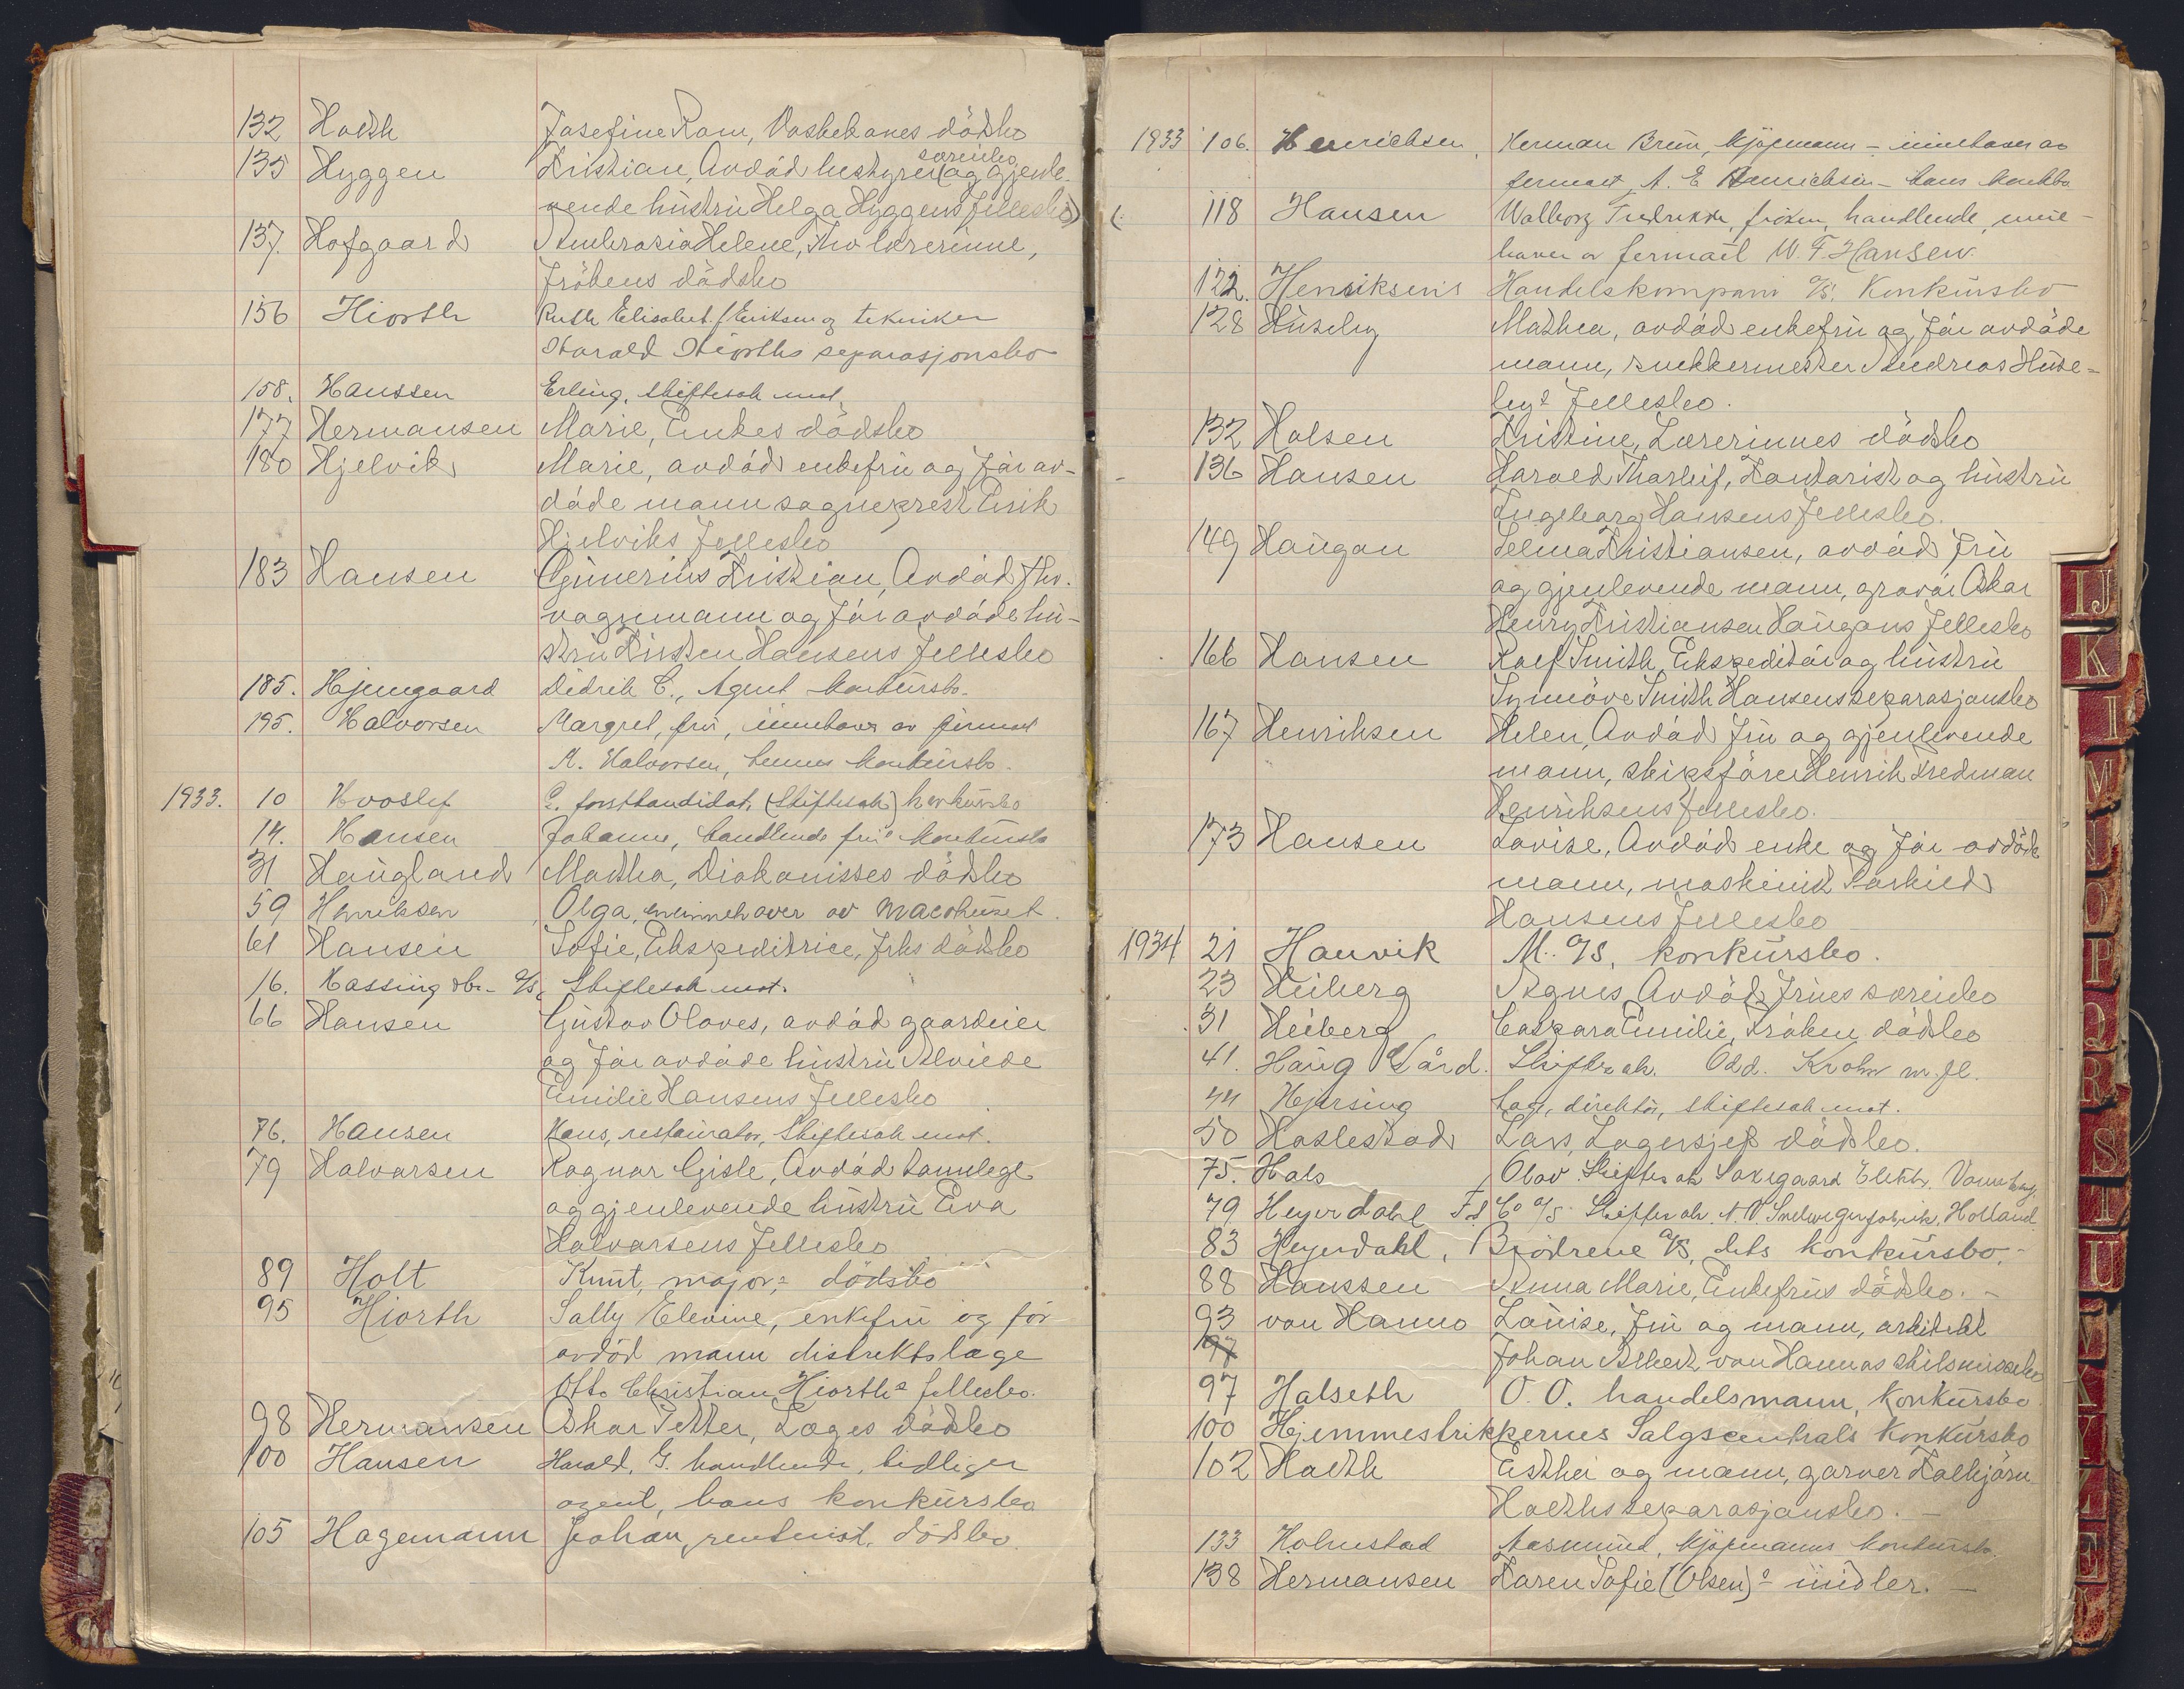 132 Holth Josefine Ram, dödsbo
135 Hyggen Kristian, Avdöd bestyrer (og gjenle-
særeiebo
vende hustru Helga Hyggens fellesbo)
137. Hofgaard Ambrosia Helene, fhv lærerinne,
Frökens dödsbo
156 Hiorth Ruth Elisabet f. Eriksen og tekniker
Harald Hiorths separasjonsbo
158. Hanssen Erling, skiftesak mot.
177 Hermansen Marie, Enkes dödsbo
180 Hjelvik Marie, avdöd enkefru og för av-
döde mann sogneprest Eirik
Hjelviks fellesbo
183 Hansen Gunerius Kristian, Avdöd fhv.
vognmann og för avdöde hu-
stru Kirsten Hansens fellesbo
185. Hjemgaard Didrik C., Agent konkursbo.
195. Halvorsen Margret, fru, innehaver av firmaet
M. Halvorsen, hennes konkursbo.
1933. 10 Hvoslef forstkandidat, (Skiftesak) konkursbo
14. Hansen Johanne, handlende frus konkursbo
31 Haugland Martha, Diakonisses dödsbo
59 Henriksen Olga, innehaver av Macohuset.
61 Hansen Sofie, Ekspeditrice, frks dödsbo
16. Hassing A/S, Skiftesak mot.
66 Hansen Gustav Olaves, avdöd gaardeier
og för avdöde hustru Alvilde
Emilie Hansens fellesbo
76. Hansen Hans, restauratör, Skiftesak mot.
79 Halvorsen Ragnar Gisle, Avdöd tannlege
og gjenlevende hustru Eva
Halvorsens fellesbo
89 Holt Knut, majors dödsbo
95 Hiorth Sally Elevine, enkefru og för
avdöd mann distriktslæge
Otto Christian Hiorths fellesbo.
98 Hermansen Oskar Petter, Læges dödsbo
100 Hansen Harald, G. handlende, tidligere
agent, hans konkursbo
105 Hagemann Johan, rentenist, dödsbo.
1933 106. Henrichsen, Herman Brun, kjöpmann - innehaver av
firmaet A. E Henrichsen - hans konkbo
118 Hansen Walborg Fredrikke, fröken, handlende, inne-
haver av firmaet W. F. Hansen.
122. Henriksens Handelskompani A/S. Konkursbo
128 Huseby Mathea, avdöd enkefru og för avdöde
mann, snekkermester Andreas Huse-
bys fellesbo.
132 Holsen Kristine, Lærerinnes dödsbo
136 Hansen Harald Thorleif, Kontorist og hustru
Ingeborg Hansens fellesbo.
149 Haugan Selma Kristiansen, avdöd fru
og gjenlevende mann, gravör Oskar
Henry Kristiansen Haugans fellesbo
166 Hansen Rolf Smith, Ekspeditör og hustru
Synnöve Smith Hansens separasjonsbo
167 Henriksen Helen, Avdöd fru og gjenlevende
mann, skipsförer Henrik Fredman
Henriksens fellesbo.
173 Hansen Lovise, Avdöd enke og för avdöde
mann, maskinist Torkild
Hansens fellesbo
1934 21 Hauvik M. A/S, konkursbo.
23 Heiberg Agnes, Avdöd frues særeiebo
31 Heiberg Caspara Emilie, Fröken, dödsbo
41. Haug Gård. Skiftesak. Odd. Krohn m. fl.
44 Hjersing direktör, skiftesak mot.
50 Haslestad Lars, Lagersjef dödsbo.
75. Hals Olav. Skiftesak Saxegaard Elektr.
79 Heyerdahl Co A/S. Skiftesak. N.V. Holland
83 Heyerdahl, Brödrene A/S, dets konkursbo.
88 Hanssen Anna Marie, Enkefrus dödsbo. -
93 von Hanno Louise, fru og mann, arkitekt
97 Johan Albert von Hannos skilsmissebo
97 Halseth O. O. handelsmann, konkursbo
100 Hjemmestrikkernes Salgscentrals Konkursbo
102 Holth Esther og mann, garver Kolbjörn
Holths separasjonsbo. -
133 Holmstad Aasmund, kjöpmanns konkursbo.
138 Hermansen Karen Sofie (Olsen)s midler. -
IJ
K
M
N
O
P
Q
R
S
T
U